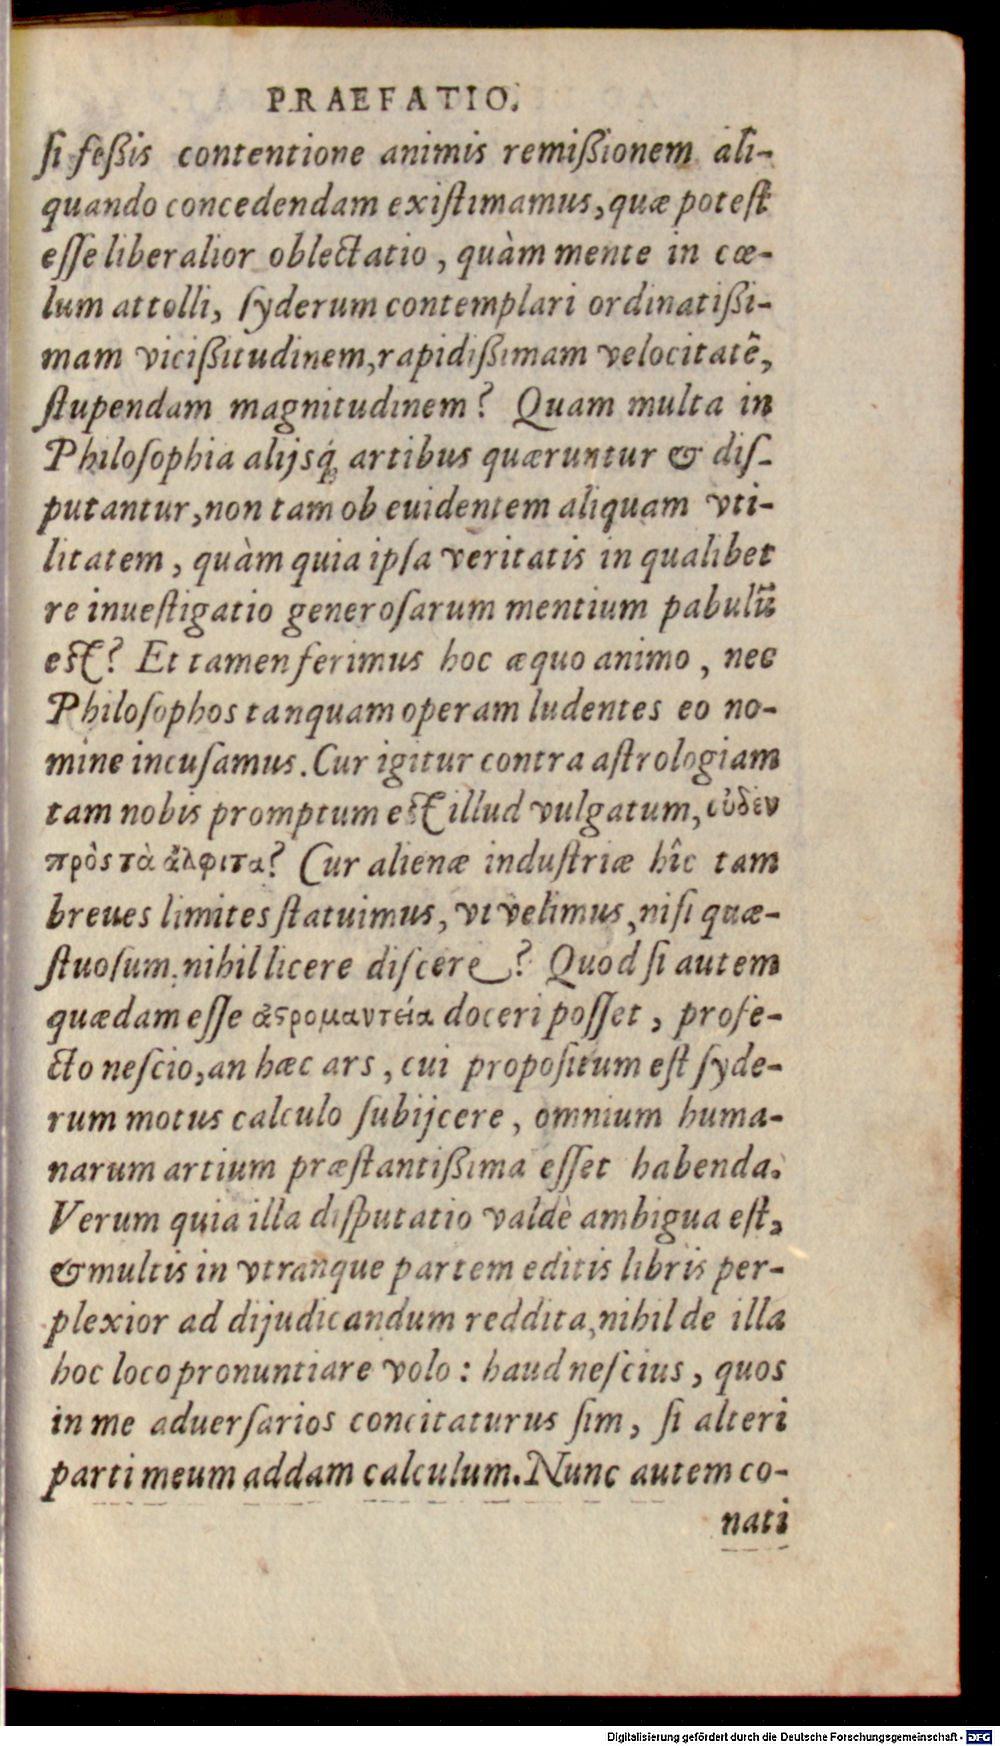 PRAEFATIO.
si feßis contentione animis remißionem ali-
quando concedendam existimamus, quæ potest
esse liberalior oblectatio, quàm mente in cæ-
lum attolli, syderum contemplari ordinatißi-
mam vicißitudinem, rapidißimam velocitatē,
stupendam magnitudinem? Quam multa in
Philosophia alijsq́; artibus quæruntur & dis-
putantur, non tam ob euidentem aliquam vti-
litatem, quàm quia ipsa veritatis in qualibet
re inuestigatio generosarum mentium pabulū
est? Et tamen ferimus hoc æquo animo, nec
Philosophos tanquam operam ludentes eo no-
mine incusamus. Cur igitur contra astrologiam
tam nobis promptum est illud vulgatum, οὐδὲν
πρὸς τὰ ἄλφιτα? Cur alienæ industriæ hîc tam
breues limites statuimus, vt velimus, nisi quæ-
stuosum, nihil licere discere? Quod si autem
quædam esse ἀστρομαντεία doceri posset, profe-
cto nescio, an hæc ars, cui propositum est syde-
rum motus calculo subijcere, omnium huma-
narum artium præstantißima esset habenda.
Verum quia illa disputatio valdè ambigua est,
& multis in vtranque partem editis libris per-
plexior ad dijudicandum reddita, nihil de illa
hoc loco pronuntiare volo: haud nescius, quos
in me aduersarios concitaturus sim, si alteri
parti meum addam calculum. Nunc autem co-
nati
Digitalisierung gefördert durch die Deutsche Forschungsgemeinschaft - DFG